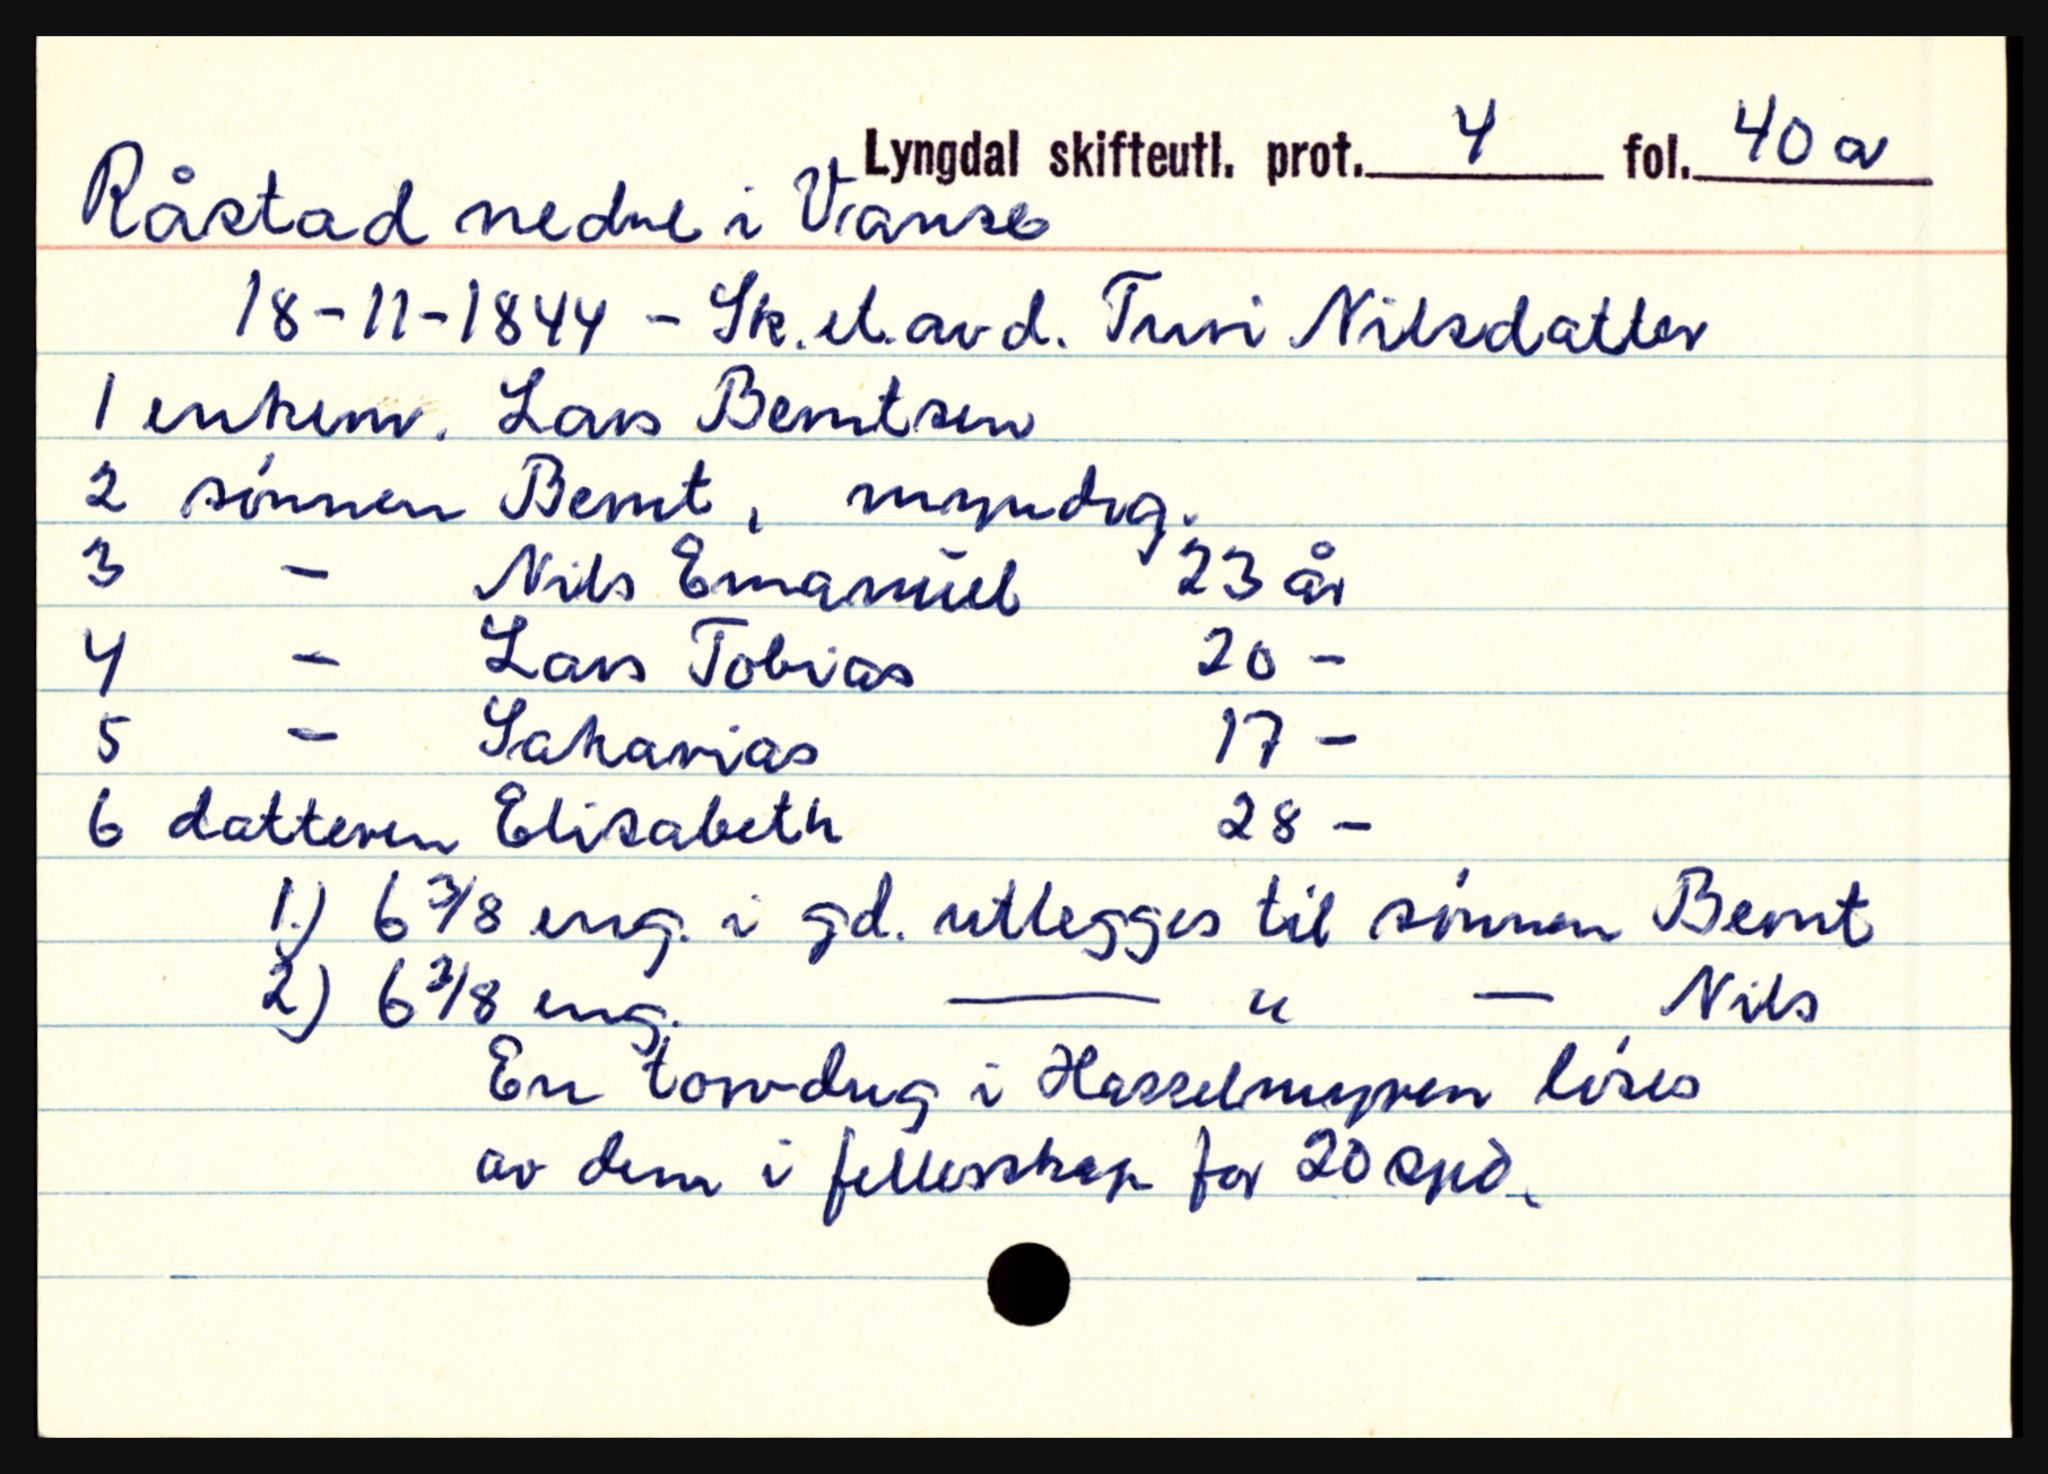 Lyngdal skifteutl. prot. 4 fol. 40 a
Råstad nedre i Vanse
18-11-1844 - Sk. et. avd. Turi Nilsdatter
1 enkem. Lars Berntsen
2 sønnen Bernt, myndig.
3 - Nils Emanuel 23 år
4 - Lars Tobias 20 -
5 - Sakarias 17 -
6 datteren Elisabeth 28 -
1.) 6 3/8 eng. i gd. utlegges til sønnen Bernt
2) 6 3/8 eng. — " — Nils
En torvdug i Hasselmyren løses
av dem i fellesskap for 20 spd.